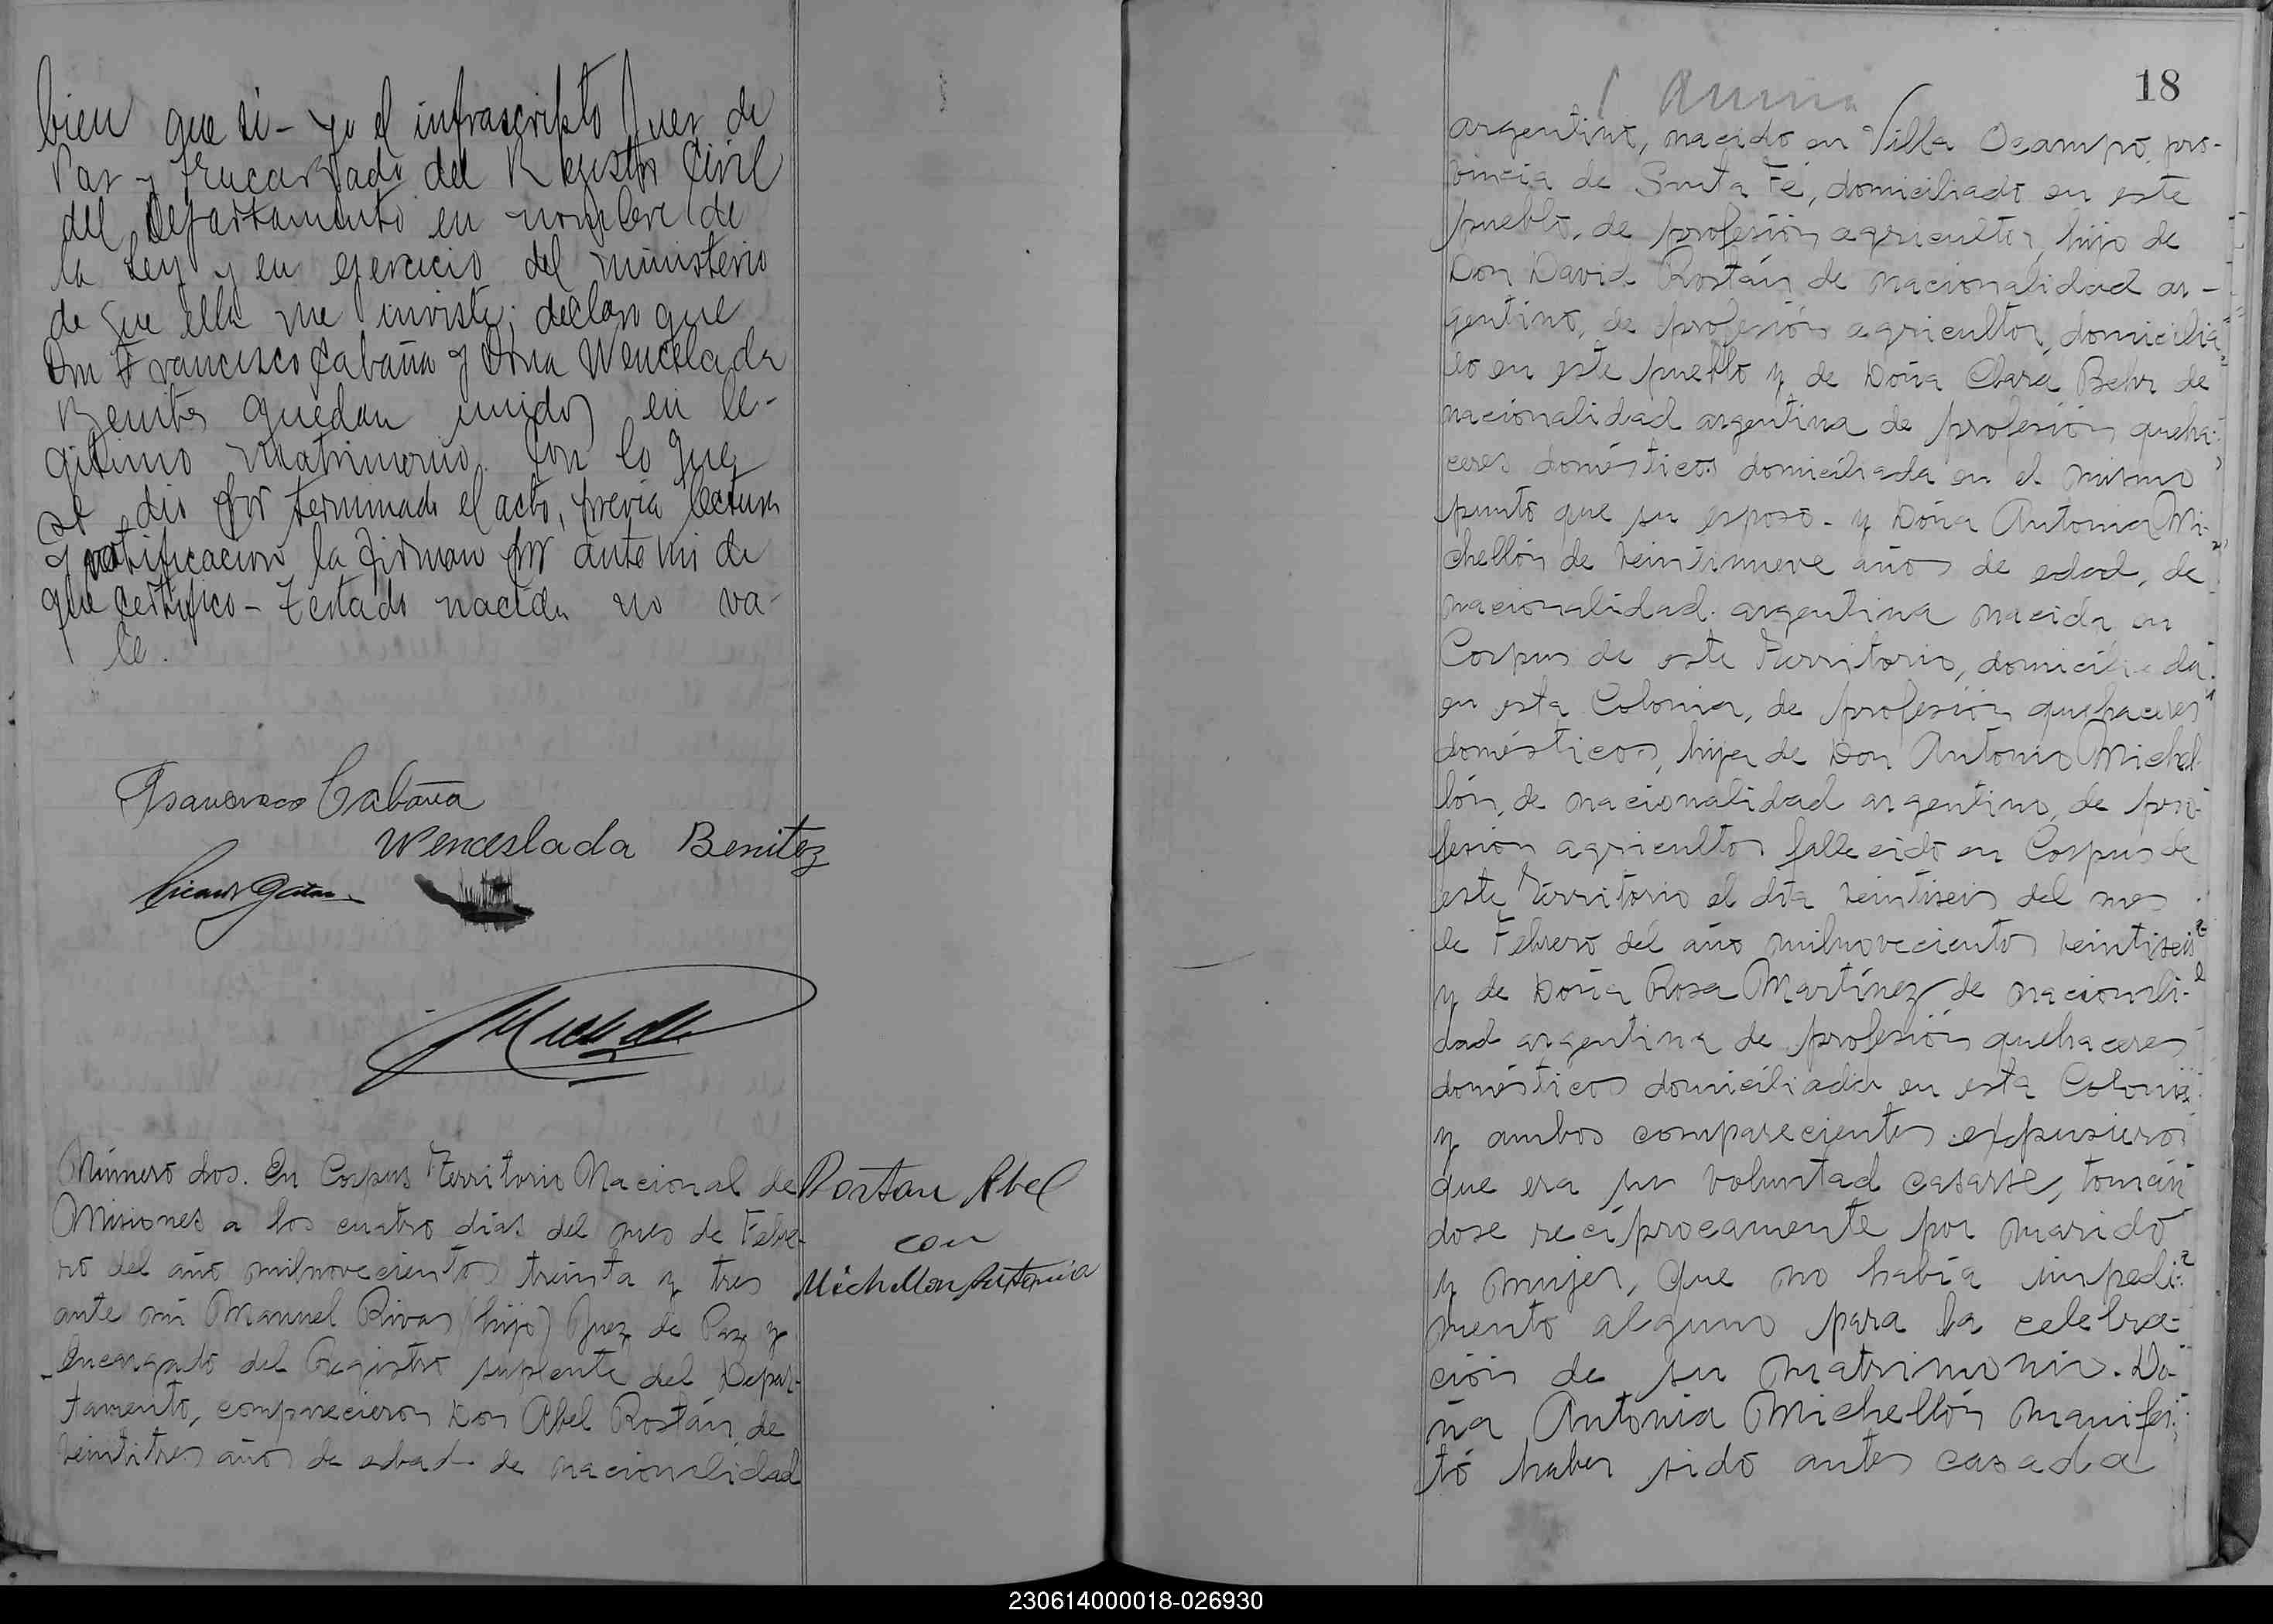 bien que si - yo el infrascripto Juez de
Paz y Encargado del Registro Civil
del Departamento en nombre de
la Ley y en ejercicio del ministerio
de que ella me inviste, declaro que
Don Francisco Cabaña y Doña Wencelada
Benites quedan unidos en le-
gitimo matrimonio. Con lo que
se dio por terminado el acto, previa lectura
y ratificacion la firman por ante mi de
que certifico - Testado nacida no va-
le.
Francisco Cabaña
Wenceslada Benitez
Número dos. En Corpus Territorio Nacional de
Misiones a los cuatro días del mes de Febre-
ro del año milnovecientos treinta y tres
ante mi Manuel Rivas (hijo) Juez de Paz y
Encargado del Registro suplente del Depar-
tamento, comparecieron Don Abel Rostán, de
veintitres años de edad de nacionalidad
Rostan Abel
con
Michellon Antonia
18
argentino, nacido en Villa Ocampo, pro-
vincia de Santa Fé, domiciliado en este
pueblo, de profesión agricultor, hijo de
Don David Rostán de nacionalidad ar-
gentino, de profesión agricultor, domicilia
do en este pueblo y de Doña Clara Behr de
nacionalidad argentina de profesión queha-
ceres domésticos domiciliada en el mismo
punto que su esposo - y Doña Antonia Mi-
chellón de veintinueve años de edad, de
nacionalidad argentina nacida en
Corpus de este Territorio, domiciliada
en esta Colonia, de profesión quehaceres
domésticos, hija de Don Antonio Michel-
lón, de nacionalidad argentino, de pro-
fesión agricultor fallecido en Corpus de
este Territorio el día veintiseis del mes
de Febrero del año milnovecientos veintiseis
y de Doña Rosa Martínez de nacionali-
dad argentina de profesión quehaceres
domésticos domiciliada en esta Colonia
y ambos comparecientes expusieron
que era su voluntad casarse, tomán
dose recíprocamente por marido
y mujer, que no había impedi-
mento alguno para la celebra-
ción de su matrimonio. Do-
ña Antonia Michellón manifes-
tó haber sido antes casada
230614000018-026930